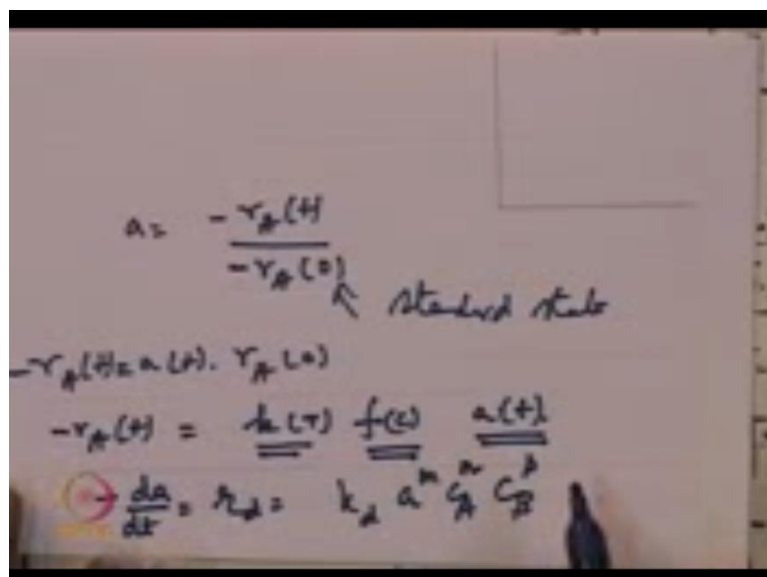 a = -r_A(t) / -r_A(0)
standard state
-r_A(t) = a(t). r_A(0)
-r_A(t) = k(T) f(c) a(t)
-da/dt = r_d = k_d a^m C_A^n C_B^p